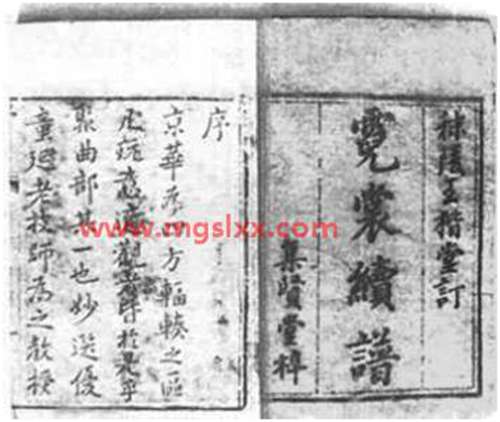 秣陵王楷堂訂
霓裳續譜
集賢堂梓
序
京華為四方輻輳之區
凡玩意適觀者皆於是乎
聚曲部其一也妙選優
童延老技師為之教授
www.mgslxx.com